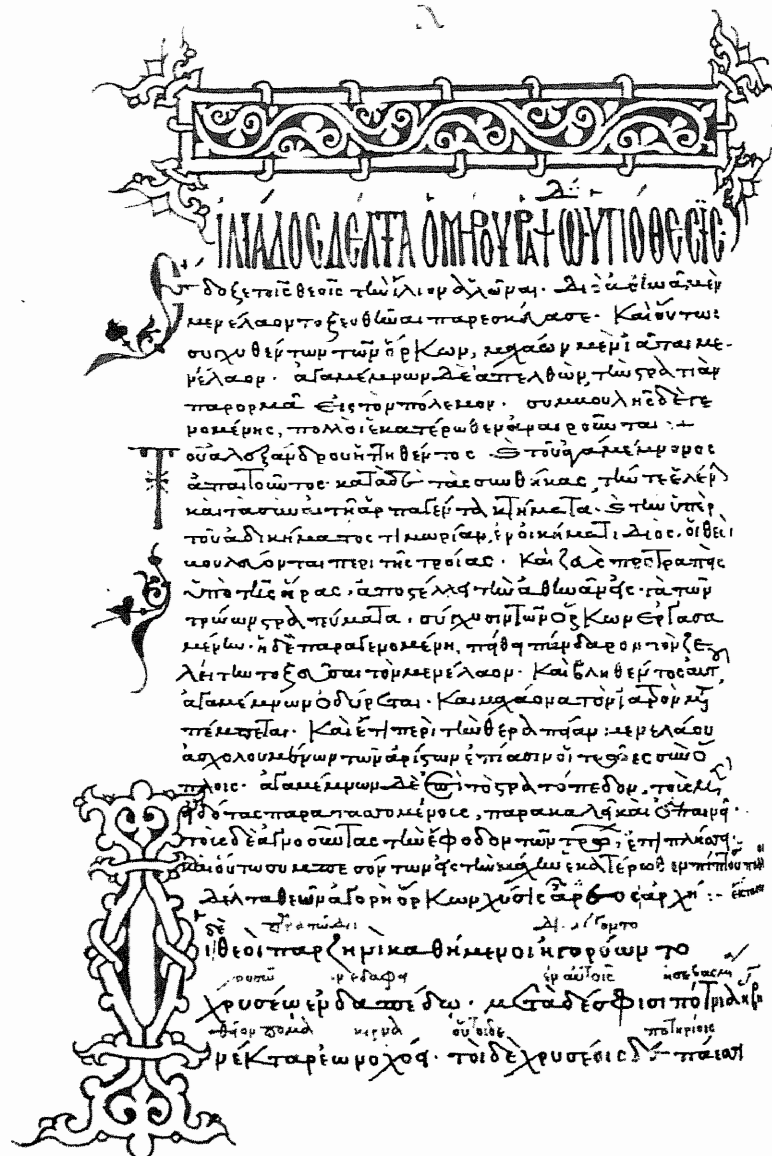 ἰλιάδος δέλτα ὁμήρου ῥαψω ὑπόθεσις
δοξε τοῖς θεοῖς τὴν ἴλιον ἁλῶναι
μενέλαον τοξευθῆναι παρεσκεύασε. Καὶ οὕτως
συγχυθέντων τῶν ὅρκων, μαχάων μὲν ἰᾶται με-
νέλαον. ἀγαμέμνων δὲ ἀπελθὼν, τὴν στρατιὰν
παρορμᾶ εἰς τὸν πόλεμον. συμβουλῆς δὲ γε
νομένης, πολλοὶ ἑκατέρωθεν ἀναιροῦνται :+
Τοῦ ἀλεξάνδρου ἡττηθέντος ἀγαμέμνονος
ἀπαιτοῦντος κατὰ τὰς συνθήκας, τήν τε ἑλέν
καὶ τὰ σὺν αὐτῆ ἁρπαγέντα κτήματα. τὴν ὑπὲρ
τοῦ ἀδικήματος τιμωρίαν, ἐν οἰκήματι διὸς. οἱ θεοὶ
βουλεύονται περὶ τῆς τροίας. Καὶ ζεὺς προτραπεὶς
ὑπὸ τῆς ἥρας, ἀποστέλλει τὴν ἀθηνᾶν εἰς τὰ τῶν
τρώων στρατεύματα, σύγχυσιν τῶν ὅρκων ἐργασα
μένην. ἡ δὲ παραγενομένη, πείθει πάνδαρον τὸν ζε
λείτην τοξεῦσαι τὸν μενέλαον. Καὶ βληθέντος αὐτ
ἀγαμέμνων ὀδύρεται. Καὶ μαχάονα τὸν ἰατρὸν
πέμπεται. Καὶ ἔτι περὶ τὴν θεραπείαν μενελάου
ἀσχολουμένων τῶν ἀρίστων ἐπίασιν οἱ τρῶες σὺν ὅ
πλοις. ἀγαμέμνων δὲ τὸ στρατόπεδον, τοῖς
παρατασσομένοις, παρακαλεῖ καὶ ἐπαινεῖ.
τοὺς δὲ ἀγνοοῦντας τὴν ἔφοδον τῶν τρω, ἐπιπλήσσει.
καὶ οὕτω συμπεσόντων εἰς τὴν μάχην ἑκατέρωθεν πίπτουσι
Δέλτα θεῶν ἀγορὴ ὅρκων χύσις ἄρεος ἀρχή :-
ἱ θεοὶ πὰρ ζηνὶ καθήμενοι ἠγορόωντο
ἐν αὐτοῖς
χρυσέω ἐν δαπέδω. μετὰ δέ σφισι πότνια ἥβη
ποτηρίοις
νέκταρ ἐωνοχόει. τοὶ δὲ χρυσέοις δεπάεσσι